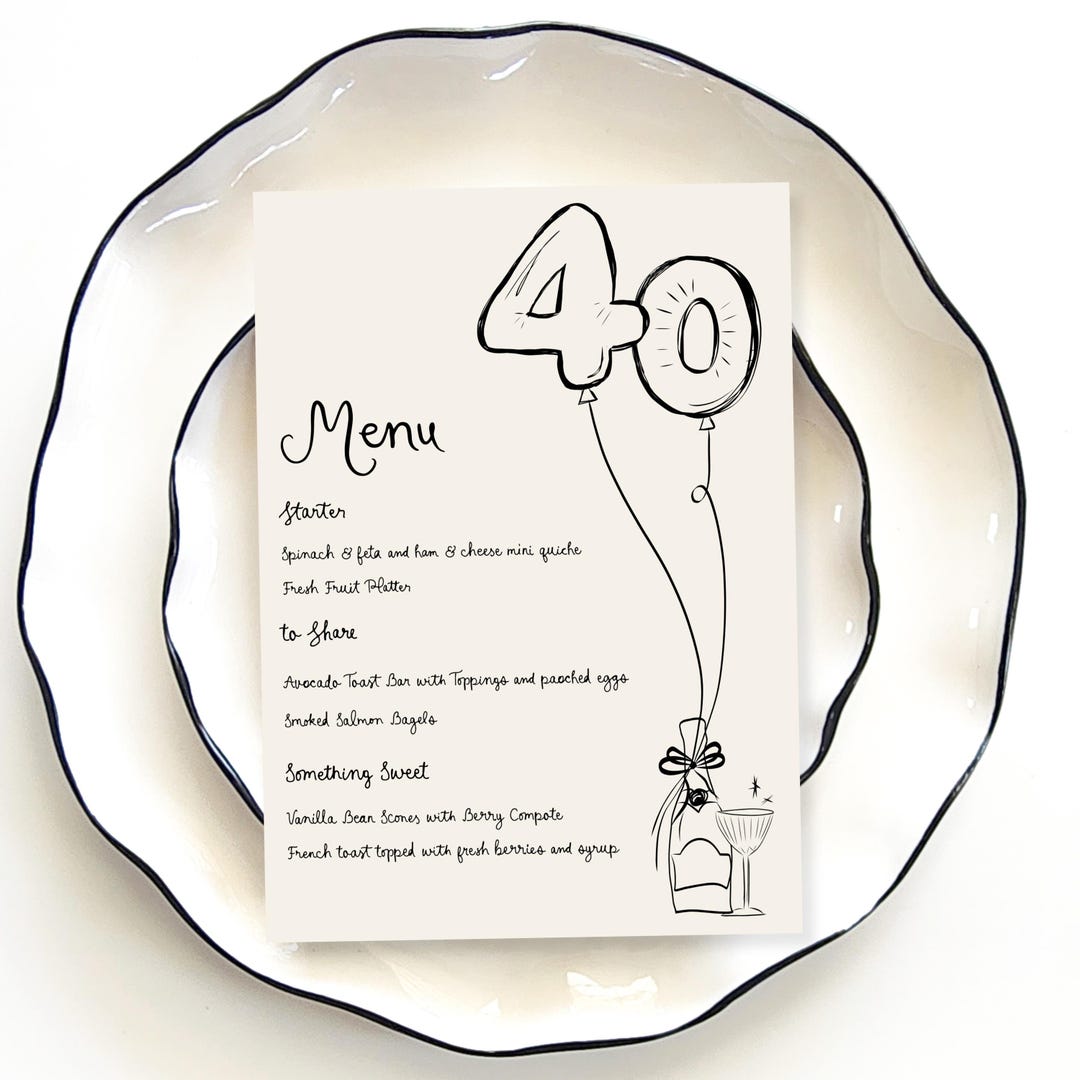 40
Menu
Starter
Spinach & feta and ham & cheese mini quiche
Fresh Fruit Platter
to Share
Avocado Toast Bar with Toppings and paoched eggs
Smoked Salmon Bagels
Something Sweet
Vanilla Bean Scones with Berry Compote
French toast topped with fresh berries and syrup